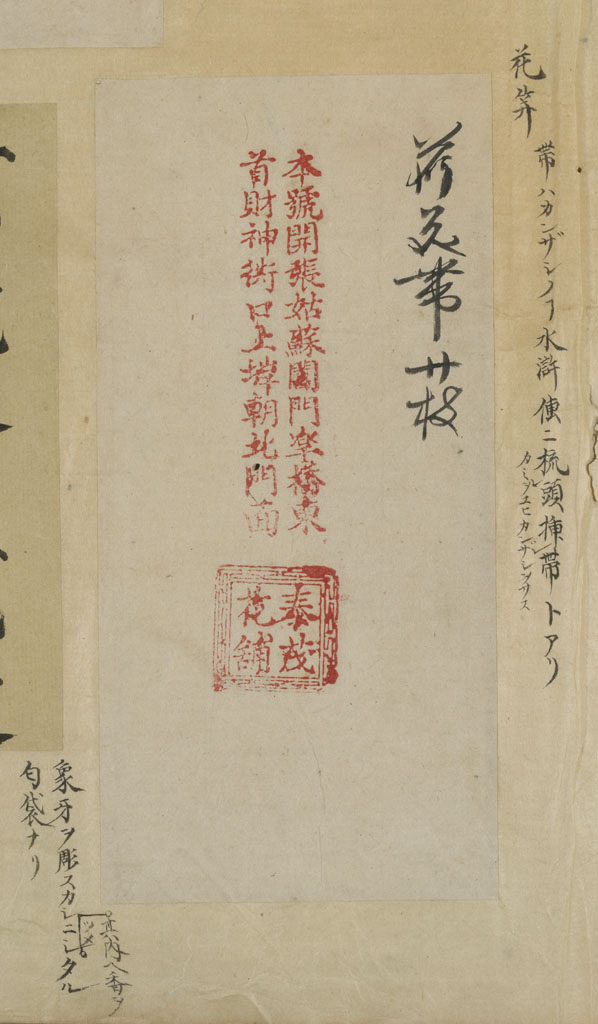 花筭
帯ハカンザシノヿ水滸傳ニ梳頭揷帯トアリ
カミヲユヒカンザシヲサス
荷花帯廿枝
本號開張姑蘇閶門皐橋東
首財神衖口上塲朝北門面
泰茂
花舖
象牙ヲ彫スカシニシタル
匂袋ナリ
其内ヘ香ヲ